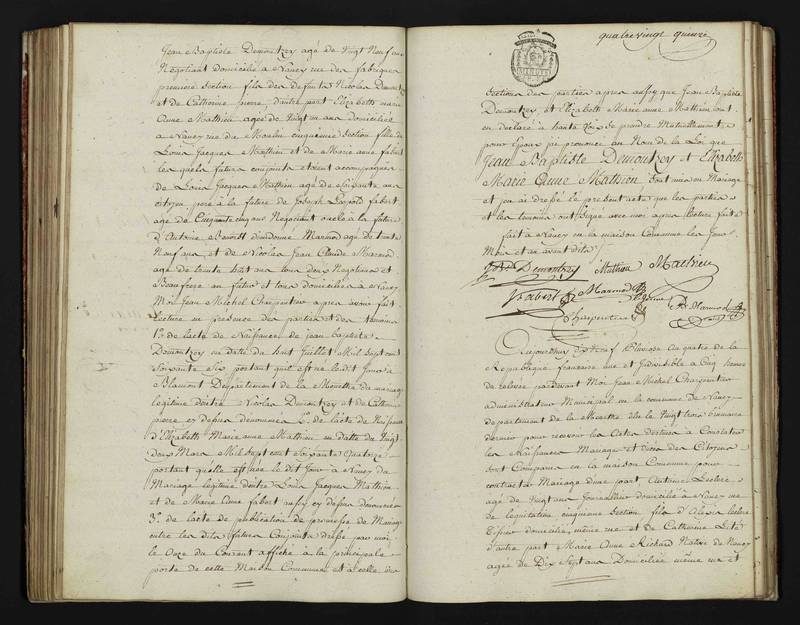 Jean Baptiste Demontzey agé de vingt Neuf ans
Negotiant domicilié a Nancy rue des fabriques
premiere section fils des defunts Nicolas Demontzey
et de Catherine pierre, d'autre part Elizabeth marie
Anne Mathieu agée de vingt un ans domiciliée
a Nancy rue du Moulin cinquieme Section fille de
Louis Jacques Mathieu et de Marie anne fabert
les quels futurs conjoints etoient accompagnés
de Louis Jacques Mathieu agé de soixante ans
citoyen pere à la future de Joseph Leopold fabert
agé de Cinquante cinq ans Negotiant oncle à la future
d'Antoine Benoist Marmod agé de trente
Neuf ans et de Nicolas Jean Claude Marmod
agé de trente huit ans tous deux Negotians et
Beaufrere au futur et tous domiciliés a Nancy
Moi Jean Michel Charpentier apres avoir fait
lecture en presence des parties et des temoins
1º de lacte de Naissance de jean baptiste
Demontzey en datte du huit juillet Mil sept cent
soixante six portant quil est né ledit jour à
Blamont Departement de la Meurthe du mariage
legitime d'entre Nicolas Demontzey et de Catherine
pierre cy dessus dénommés 2º de lacte de Naissance
d'Elizabeth Marie anne Mathieu en datte du vingt
deux Mars Mil sept cent soixante quatorze
portant quelle est née le dit jour à Nancy du
Mariage legitime d'entre Louis Jacques Mathieu
et de Marie Anne fabert aussy cy dessus dénommés
3º de lacte de publication de promesse de Mariage
entre les dits futurs Conjoints dressé par moi
le Onze du Courant affiché à la principale
porte de cette Maison Commune et à celle des
quatre vingt quinze
Sections des parties apres aussy que Jean Baptiste
Demontzey et Elizabeth Marie anne Mathieu ont
eu declaré à haute voix se prendre Mutuellement
pour Epoux j'ai prononcé au Nom de la Loi que
Jean Baptiste Demontzey et Elizabeth
Marie Anne Mathieu sont unis en Mariage
et j'en ai dressé le present acte que les parties
et les temoins ont signé avec moi apres lecture faite
fait à Nancy en la maison Commune les Jour
Mois et an avant dits
Demontzey Mathieu Mathieu
fabert Marmod
Charpentier Marmod
Aujourdhuy Neuf Pluviose an quatre de la
Republique francaise une et Indivisible à Cinq heures
de relevée pardevant Moi Jean Michel Charpentier
administrateur Municipal en la commune de Nancy
departement de la Meurthe élu le Vingt trois brumaire
dernier pour recevoir les Actes destinés à Constater
les Naissances Mariages et Décés des Citoyens
sont Comparus en la maison Commune pour
contracter Mariage d'une part Antoine Leclerc
agé de vingt ans Journallier domicilié a Nancy rue
de legislation cinquieme section fils d'Alexis leclerc
domicilié même rue et de Catherine
d'autre part Marie Anne Richard Native de Nancy
agée de Dix Sept ans Domiciliée même rue et